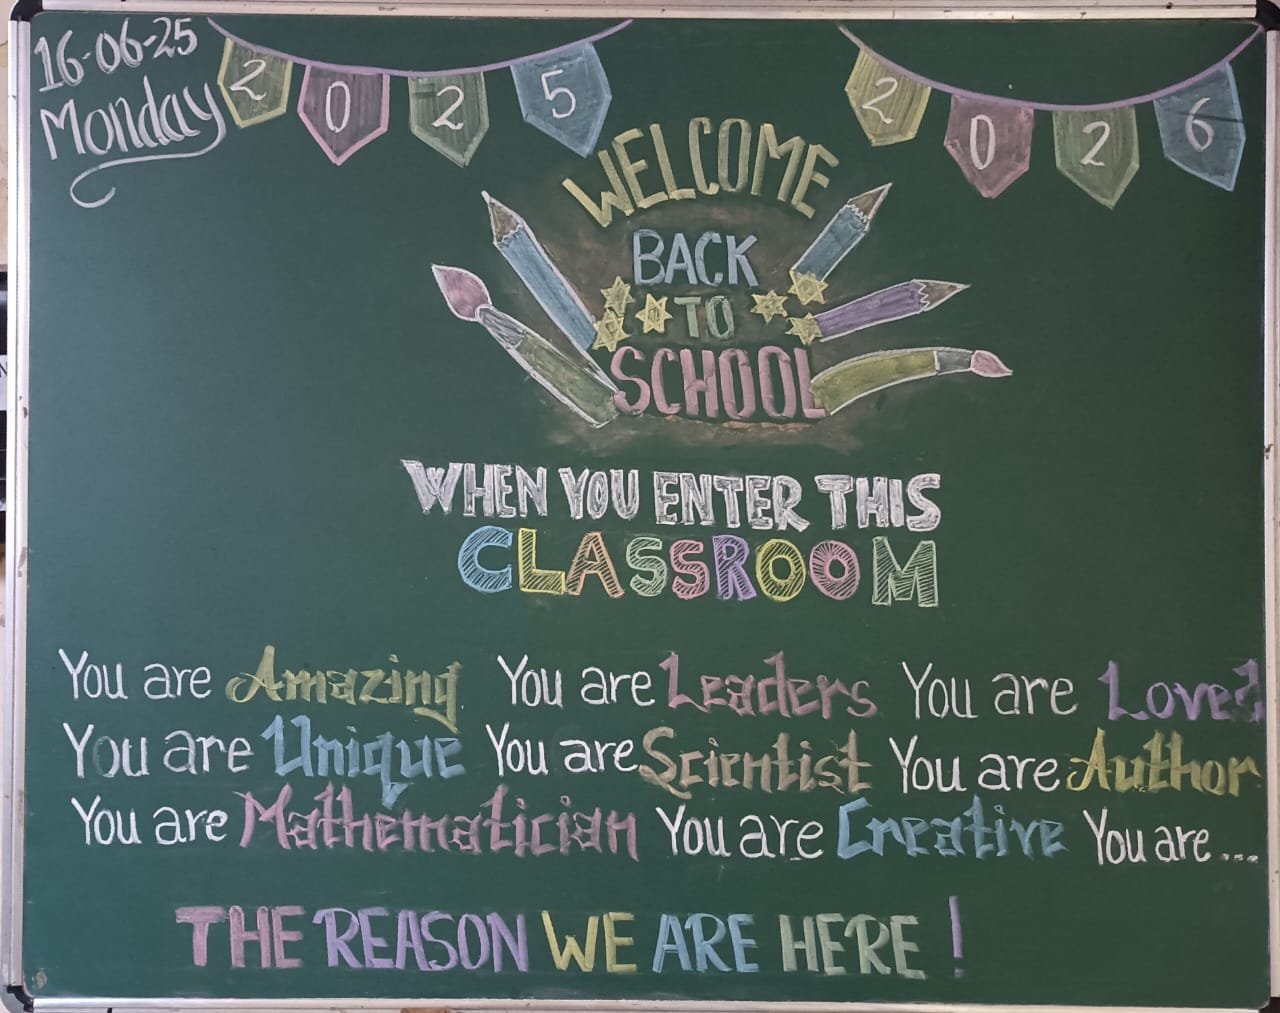 16-06-25
Monday
2025
2026
WELCOME
BACK
TO
SCHOOL
WHEN YOU ENTER THIS
CLASSROOM
You are Amazing You are Leaders You are Loved
You are Unique You are Scientist You are Author
You are Mathematician You are Creative You are ...
THE REASON WE ARE HERE !